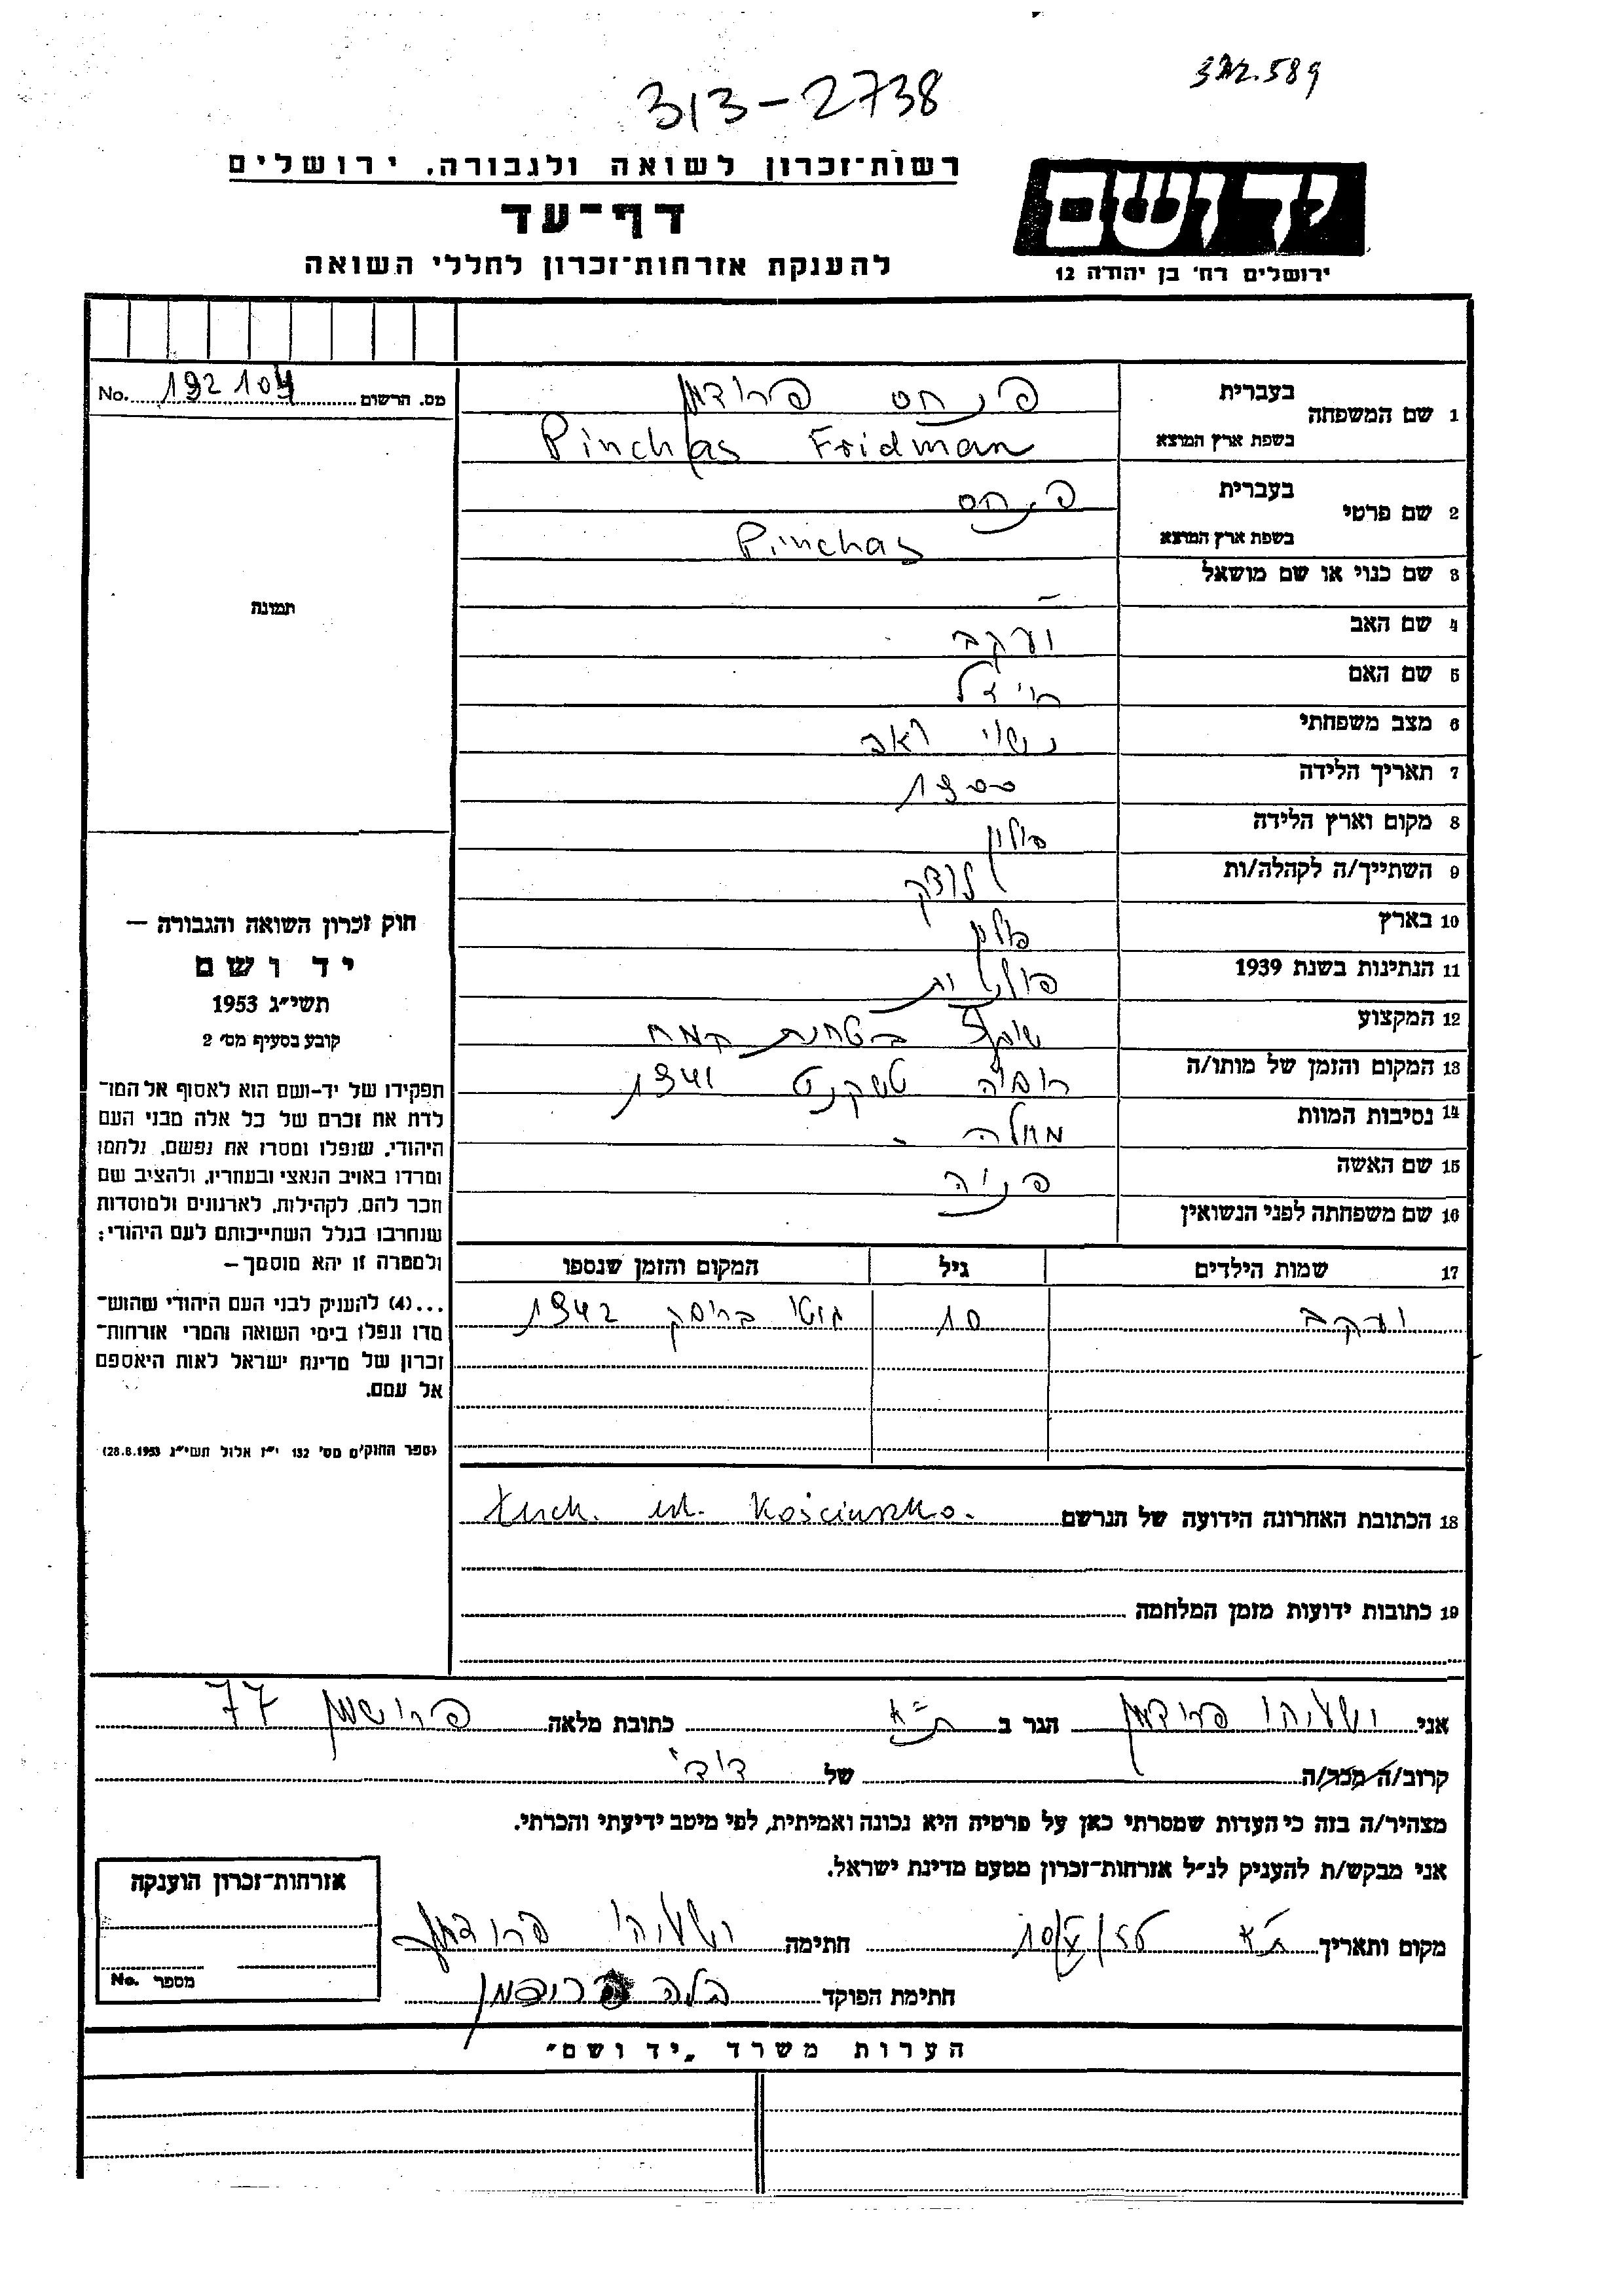 313-2738
רשות־זכרון לשואה ולגבורה, ירושלים
דף־עד
להענקת אזרחות־זכרון לחללי השואה
יד ושם
ירושלים רח' בן יהודה 12
No. 192104 מס. הרשום
1 שם המשפחה בעברית פינחס פרידמן
בשפת ארץ המוצא Pinchas Fridman
2 שם פרטי בעברית פינחס
בשפת ארץ המוצא Pinchas
3 שם כנוי או שם מושאל –
4 שם האב יעקב
5 שם האם
6 מצב משפחתי נשוי ואב
7 תאריך הלידה 1900
8 מקום וארץ הלידה פולין
9 השתייך/ה לקהלה/ות לוצק
10 בארץ פולין
11 הנתינות בשנת 1939 פולנית
12 המקצוע שותף בטחנת קמח
13 המקום והזמן של מותו/ה רוסיה טשקנט 1941
14 נסיבות המוות מחלה
15 שם האשה פניה
16 שם משפחתה לפני הנשואין
17 שמות הילדים גיל המקום והזמן שנספו
יעקב 10 גיטו בריסק 1942
18 הכתובת האחרונה הידועה של הנרשם Łuck. ul. Kościuszko.
19 כתובות ידועות מזמן המלחמה
תמונה
חוק זכרון השואה והגבורה –
יד ושם
תשי״ג 1953
קובע בסעיף מס' 2
תפקידו של יד-ושם הוא לאסוף אל המו־
לדת את זכרם של כל אלה מבני העם
היהודי, שנפלו ומסרו את נפשם, נלחמו
ומרדו באויב הנאצי ובעוזריו, ולהציב שם
וזכר להם, לקהילות, לארגונים ולמוסדות
שנחרבו בגלל השתייכותם לעם היהודי;
ולמטרה זו יהא מוסמך–
...(4) להעניק לבני העם היהודי שהוש־
מדו ונפלו בימי השואה והמרי אזרחות־
זכרון של מדינת ישראל לאות היאספם
אל עמם.
(ספר החוקים מס' 132 י״ז אלול תשי״ג 28.8.1953)
אני ישעיהו פרידמן הגר ב ת״א כתובת מלאה פרישמן 77
קרוב/ה מכר/ה של דודי
מצהיר/ה בזה כי העדות שמסרתי כאן על פרטיה היא נכונה ואמיתית, לפי מיטב ידיעתי והכרתי.
אני מבקש/ת להעניק לנ״ל אזרחות־זכרון מטעם מדינת ישראל.
מקום ותאריך ת״א חתימה ישעיהו פרידמן
חתימת הפוקד בלה
אזרחות־זכרון הוענקה
מספר No.
הערות משרד „יד ושם״